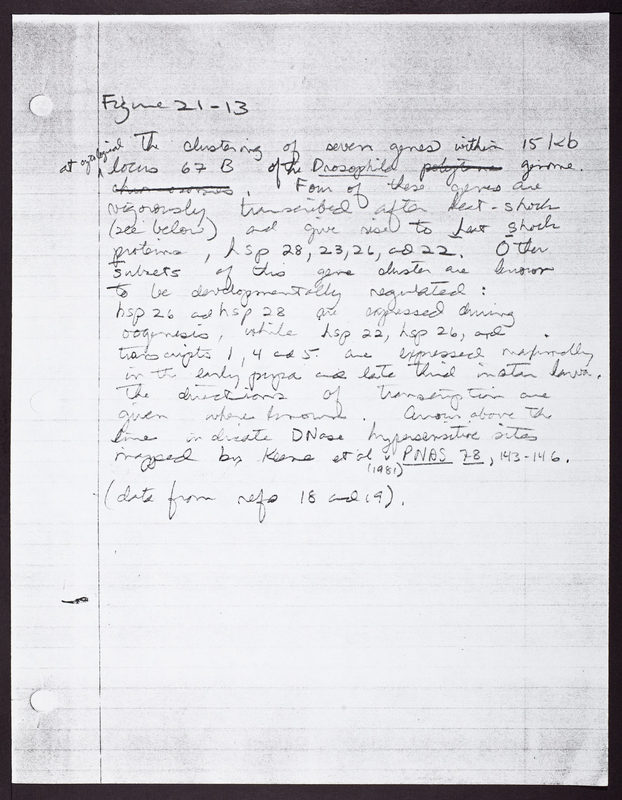 Figure 21-13
The clustering of seven genes within 15 kb
at cytological locus 67 B of the Drosophila polytene genome.
chromosomes. Four of these genes are
vigorously transcribed after heat-shock
(see below) and give rise to heat shock
proteins, hsp 28, 23, 26, and 22. Other
subsets of this gene cluster are known
to be developmentally regulated:
hsp 26 and hsp 28 are expressed during
oogenesis, while hsp 22, hsp 26, and
transcripts 1, 4 and 5. are expressed maximally
in the early pupa and late third instar larva.
The directions of transcription are
given where known. Arrows above the
line indicate DNase hypersensitive sites
mapped by Keene et al PNAS 78, 143-146.
(1981)
(data from refs 18 and 19).